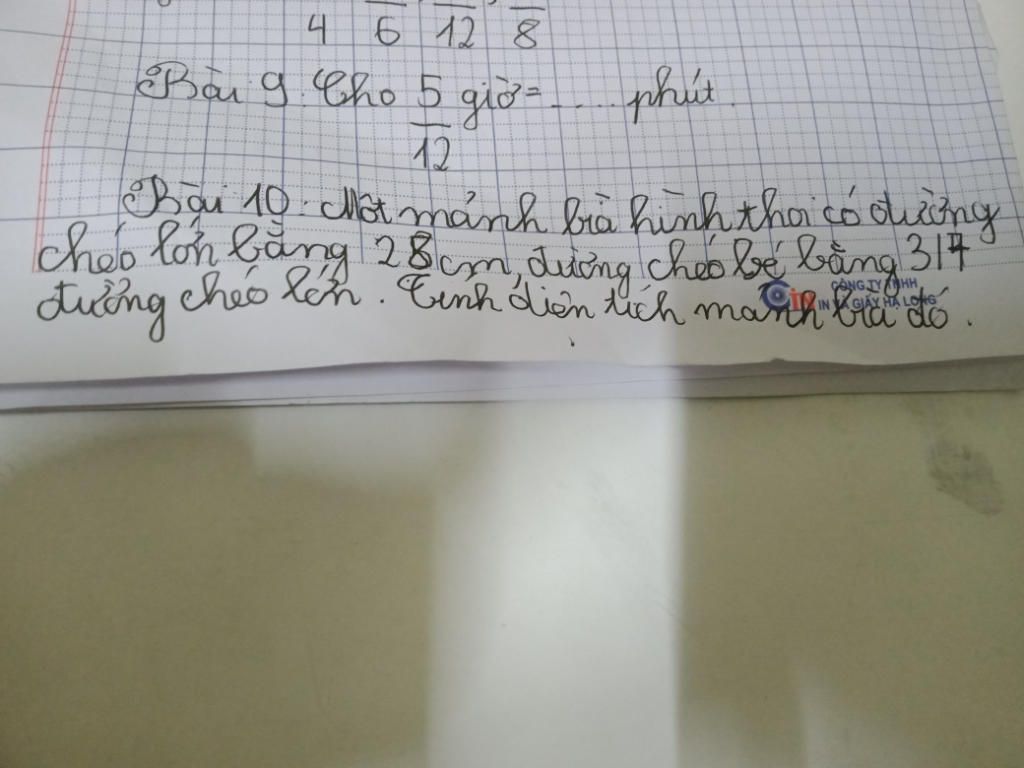 4 6 12 8
Bài 9. Cho 5 giờ = .... phút.
12
Bài 10. Một mảnh bìa hình thoi có đường
chéo lớn bằng 28 cm, đường chéo bé bằng 3/7
CÔNG TY TNHH
IN VÀ GIẤY HẠ LONG
đường chéo lớn. Tính diện tích mảnh bìa đó.